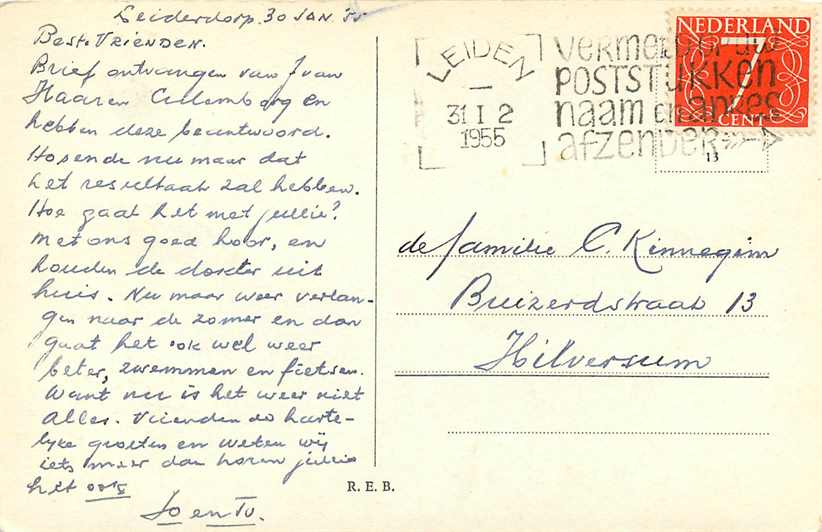 Leiderdorp. 30 Jan. 55
Beste Vrienden.
Brief ontvangen van J van
Haaren Culemborg en
hebben deze beantwoord.
Hosende nu maar dat
het resultaat zal hebben.
Hoe gaat het met jullie?
Met ons goed hoor, en
houden de dorder uit
huis. Nu maar weer verlan-
gen naar de zomer en dan
gaat het ook wel weer
beter, zwemmen en fietsen.
Want nu is het weer niet
Alles. Vrienden de harte-
lijke groeten en weten wij
iets meer dan horen jullie
het ook
Jo en Tv.
R. E. B.
LEIDEN
31 I 2
1955
vermeld op alle
POSTSTUKKEN
naam en adres
afzender
NEDERLAND
7
CENT
13
de familie C. Kinnegim
Buizerdstraat 13
Hilversum